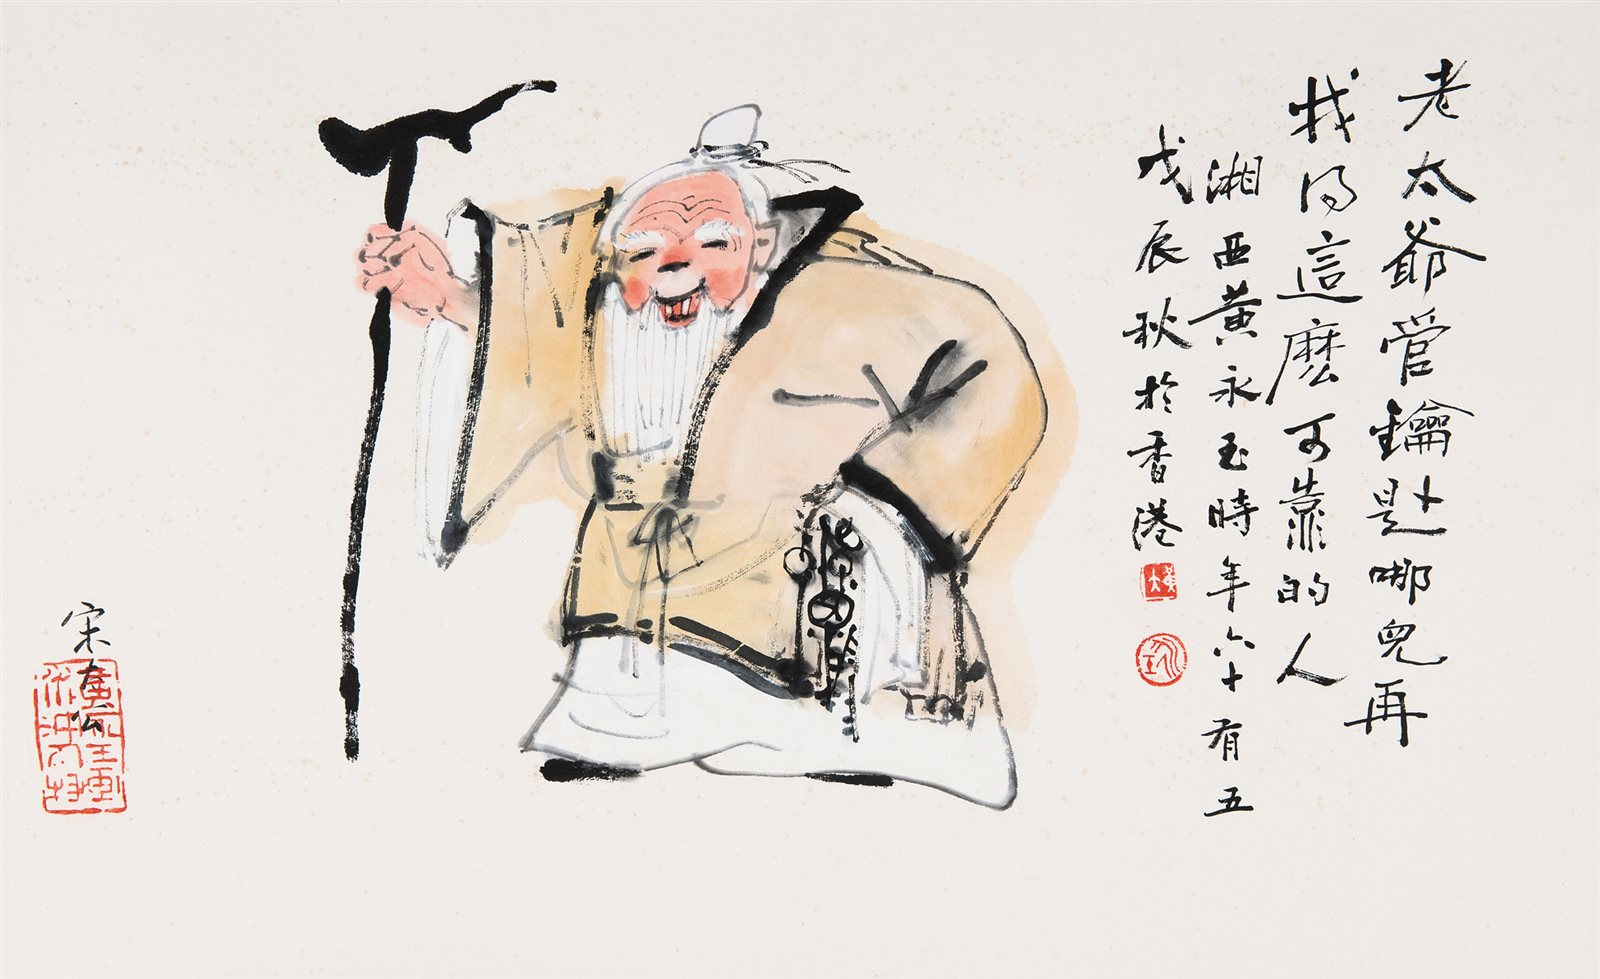 老太爺管鑰匙哪兒再
找得這麽可靠的人
湘西黃永玉時年六十有五
戊辰秋於香港
宋